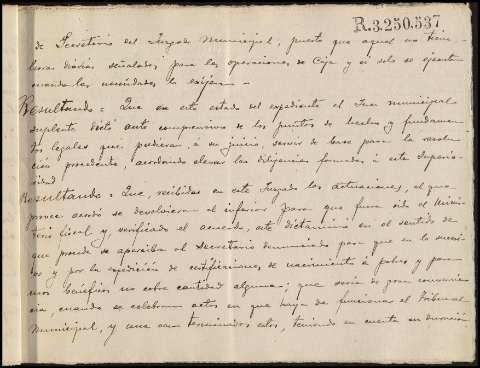 R.3.250.537
de Secretario del Juzgado Municipal, puesto que aquel no tiene
horas diarias señaladas para las operaciones de Caja y si solo se ejecutan
cuando las necesidades lo exijan
Resultando = Que en este estado del expediente el Juez municipal
suplente dictó auto comprensivo de los puntos de hecho y fundamen-
tos legales que pudieran, á su juicio, servir de base para la resolu-
ción procedente, acordando elevar las diligencias formadas á esta Superio-
ridad
Resultando = Que, recibidas en este Juzgado las actuaciones, el que
provee acordó se devolvieran al inferior para que fuera oido el Minis-
terio fiscal y, verificado el acuerdo, este dictaminó en el sentido de
que procede se aperciba al Secretario denunciado para que en lo sucesi-
vo y por la expedición de certificaciones de nacimiento á pobres y para
usos benéficos no cobre cantidad alguna; que sería de gran convenien-
cia, cuando se celebren actos en que haya de funcionar el Tribunal
Municipal, y una vez terminados estos, teniendo en cuenta su duración